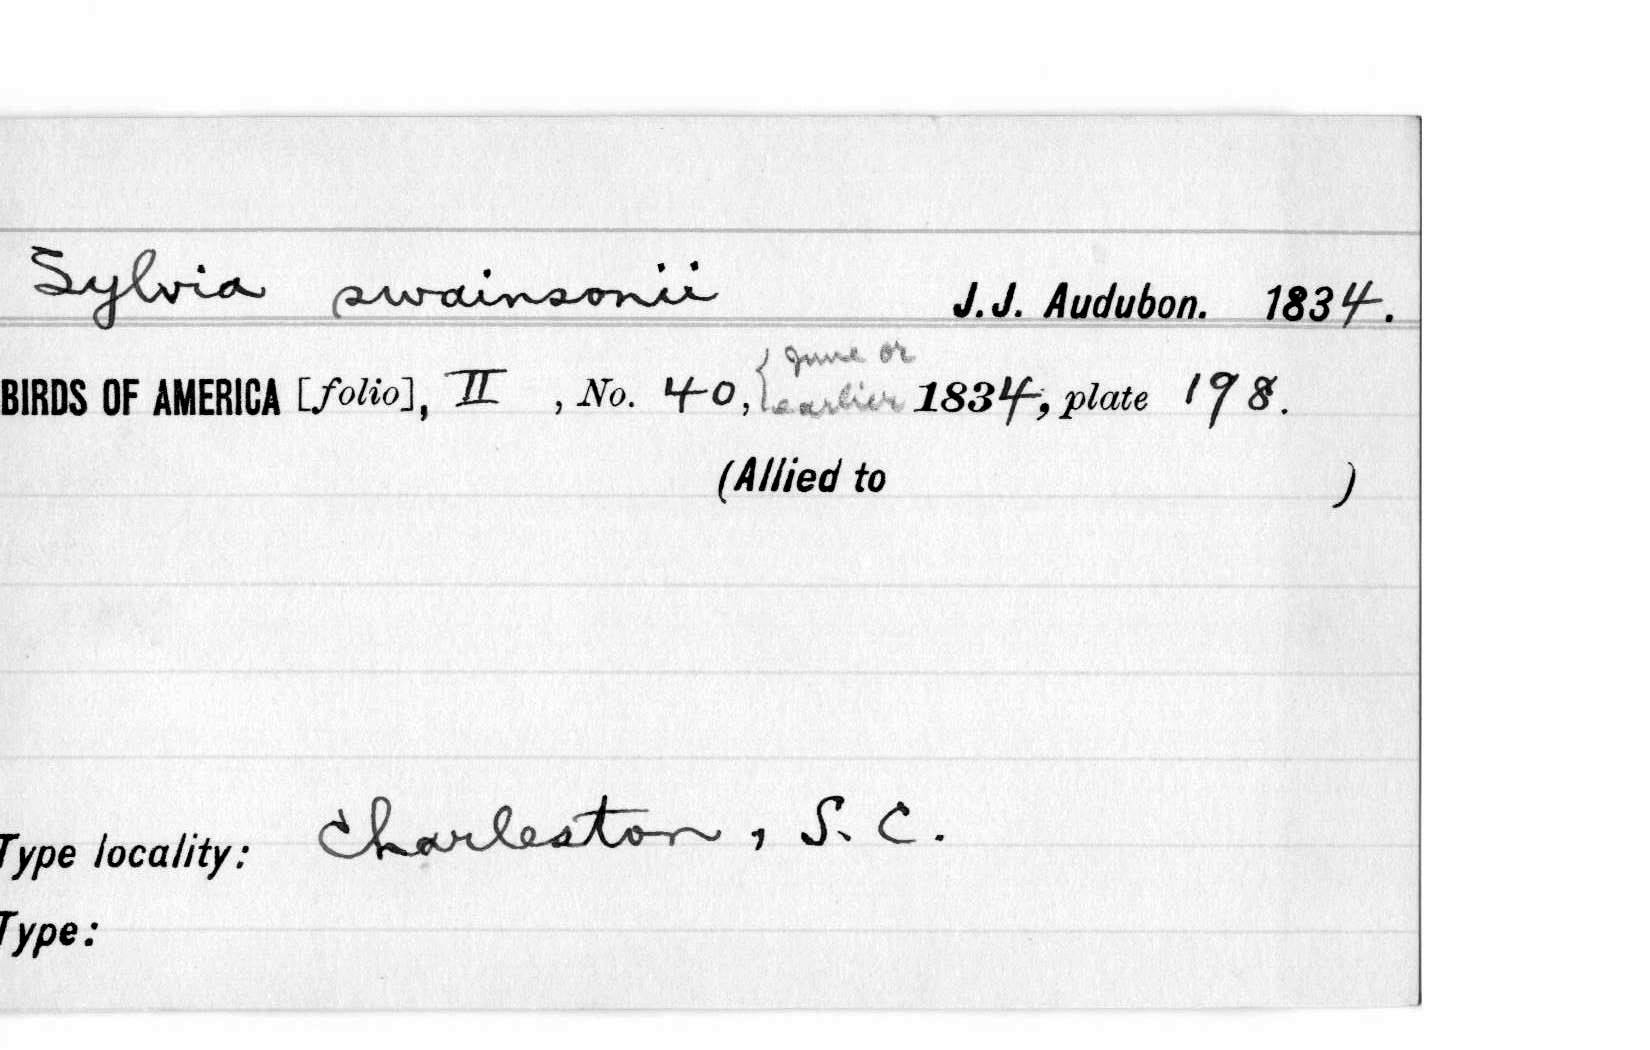 Sylvia swainsonii J. J. Audubon. 1834.
BIRDS OF AMERICA [folio], II , No. 40, {June or earlier 1834, plate 198.
(Allied to )
Type locality: Charleston, S. C.
Type: